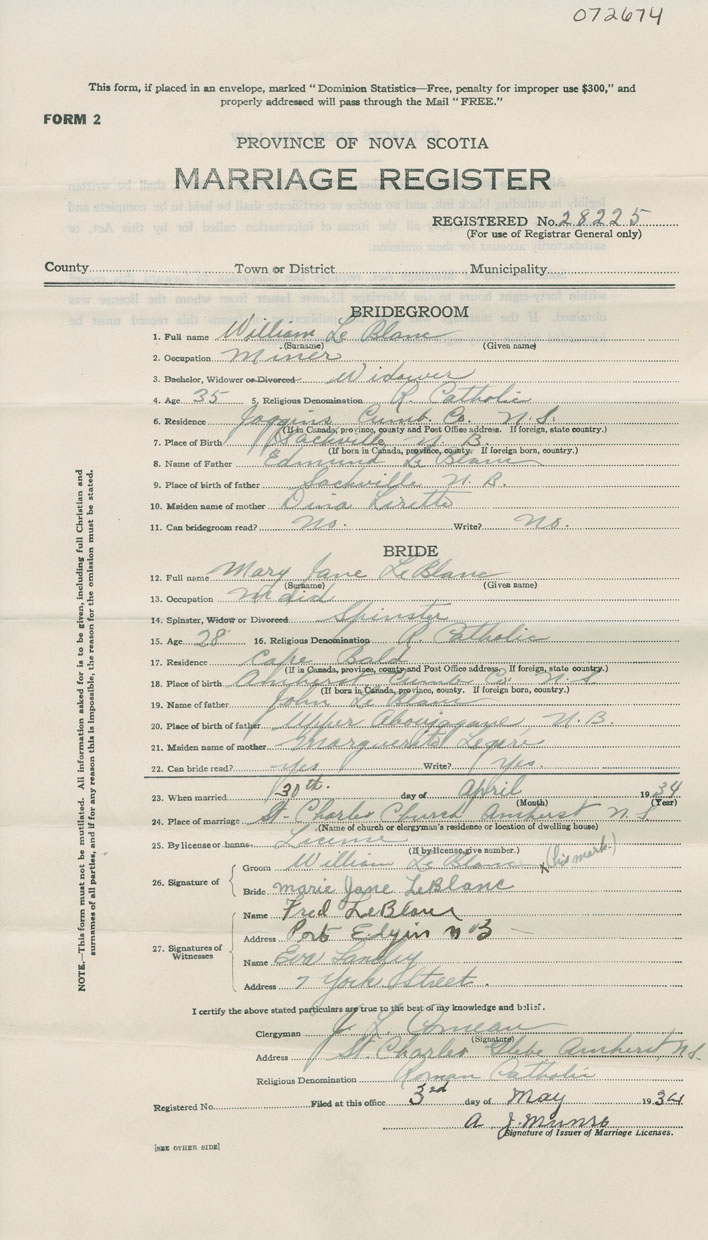 072674
This form, if placed in an envelope, marked "Dominion Statistics—Free, penalty for improper use $300," and
properly addressed will pass through the Mail "FREE."
FORM 2
PROVINCE OF NOVA SCOTIA
MARRIAGE REGISTER
REGISTERED No. 28225
(For use of Registrar General only)
County Town or District Municipality
BRIDEGROOM
1. Full name William Le Blanc
(Surname) (Given name)
2. Occupation Miner
3. Bachelor, Widower or Divorced Widower
4. Age 35 5. Religious Denomination R. Catholic
6. Residence Joggins Cumb. Co. N.S.
(If in Canada, province, county and Post Office address. If foreign, state country.)
7. Place of Birth Sackville N.B.
(If born in Canada, province, county. If foreign born, country.)
8. Name of Father Edmund Le Blanc
9. Place of birth of father Sackville N.B.
10. Maiden name of mother Dina Lirette
11. Can bridegroom read? No. Write? No.
BRIDE
12. Full name Mary Jane LeBlanc
(Surname) (Given name)
13. Occupation Maid
14. Spinster, Widow or Divorced Spinster
15. Age 28 16. Religious Denomination R. Catholic
17. Residence Cape Bald
(If in Canada, province, county and Post Office address. If foreign, state country.)
18. Place of birth Amherst Cumb Co. N.S.
(If born in Canada, province, county. If foreign born, country.)
19. Name of father John Le Blanc
20. Place of birth of father Upper Aboujagane, N.B.
21. Maiden name of mother Marguerite Legere
22. Can bride read? Yes Write? Yes.
23. When married 30th. day of April 1934
(Month) (Year)
24. Place of marriage St. Charles Church Amherst N.S
(Name of church or clergyman's residence or location of dwelling house)
25. By license or banns License
(If by license, give number.)
26. Signature of Groom William Le Blanc x (his mark.)
Bride Marie Jane LeBlanc
27. Signatures of Witnesses
Name Fred LeBlanc
Address Port Elgin N B
Name Eva Landry
Address 7 York Street.
I certify the above stated particulars are true to the best of my knowledge and belief.
Clergyman J. L. Comeau
(Signature)
Address St. Charles Glebe Amherst N.S.
Religious Denomination Roman Catholic
Registered No. Filed at this office 3rd day of May 1934
A J. Munro
Signature of Issuer of Marriage Licenses.
[SEE OTHER SIDE]
NOTE.—This form must not be mutilated. All information asked for is to be given, including full Christian and
surnames of all parties, and if for any reason this is impossible, the reason for the omission must be stated.